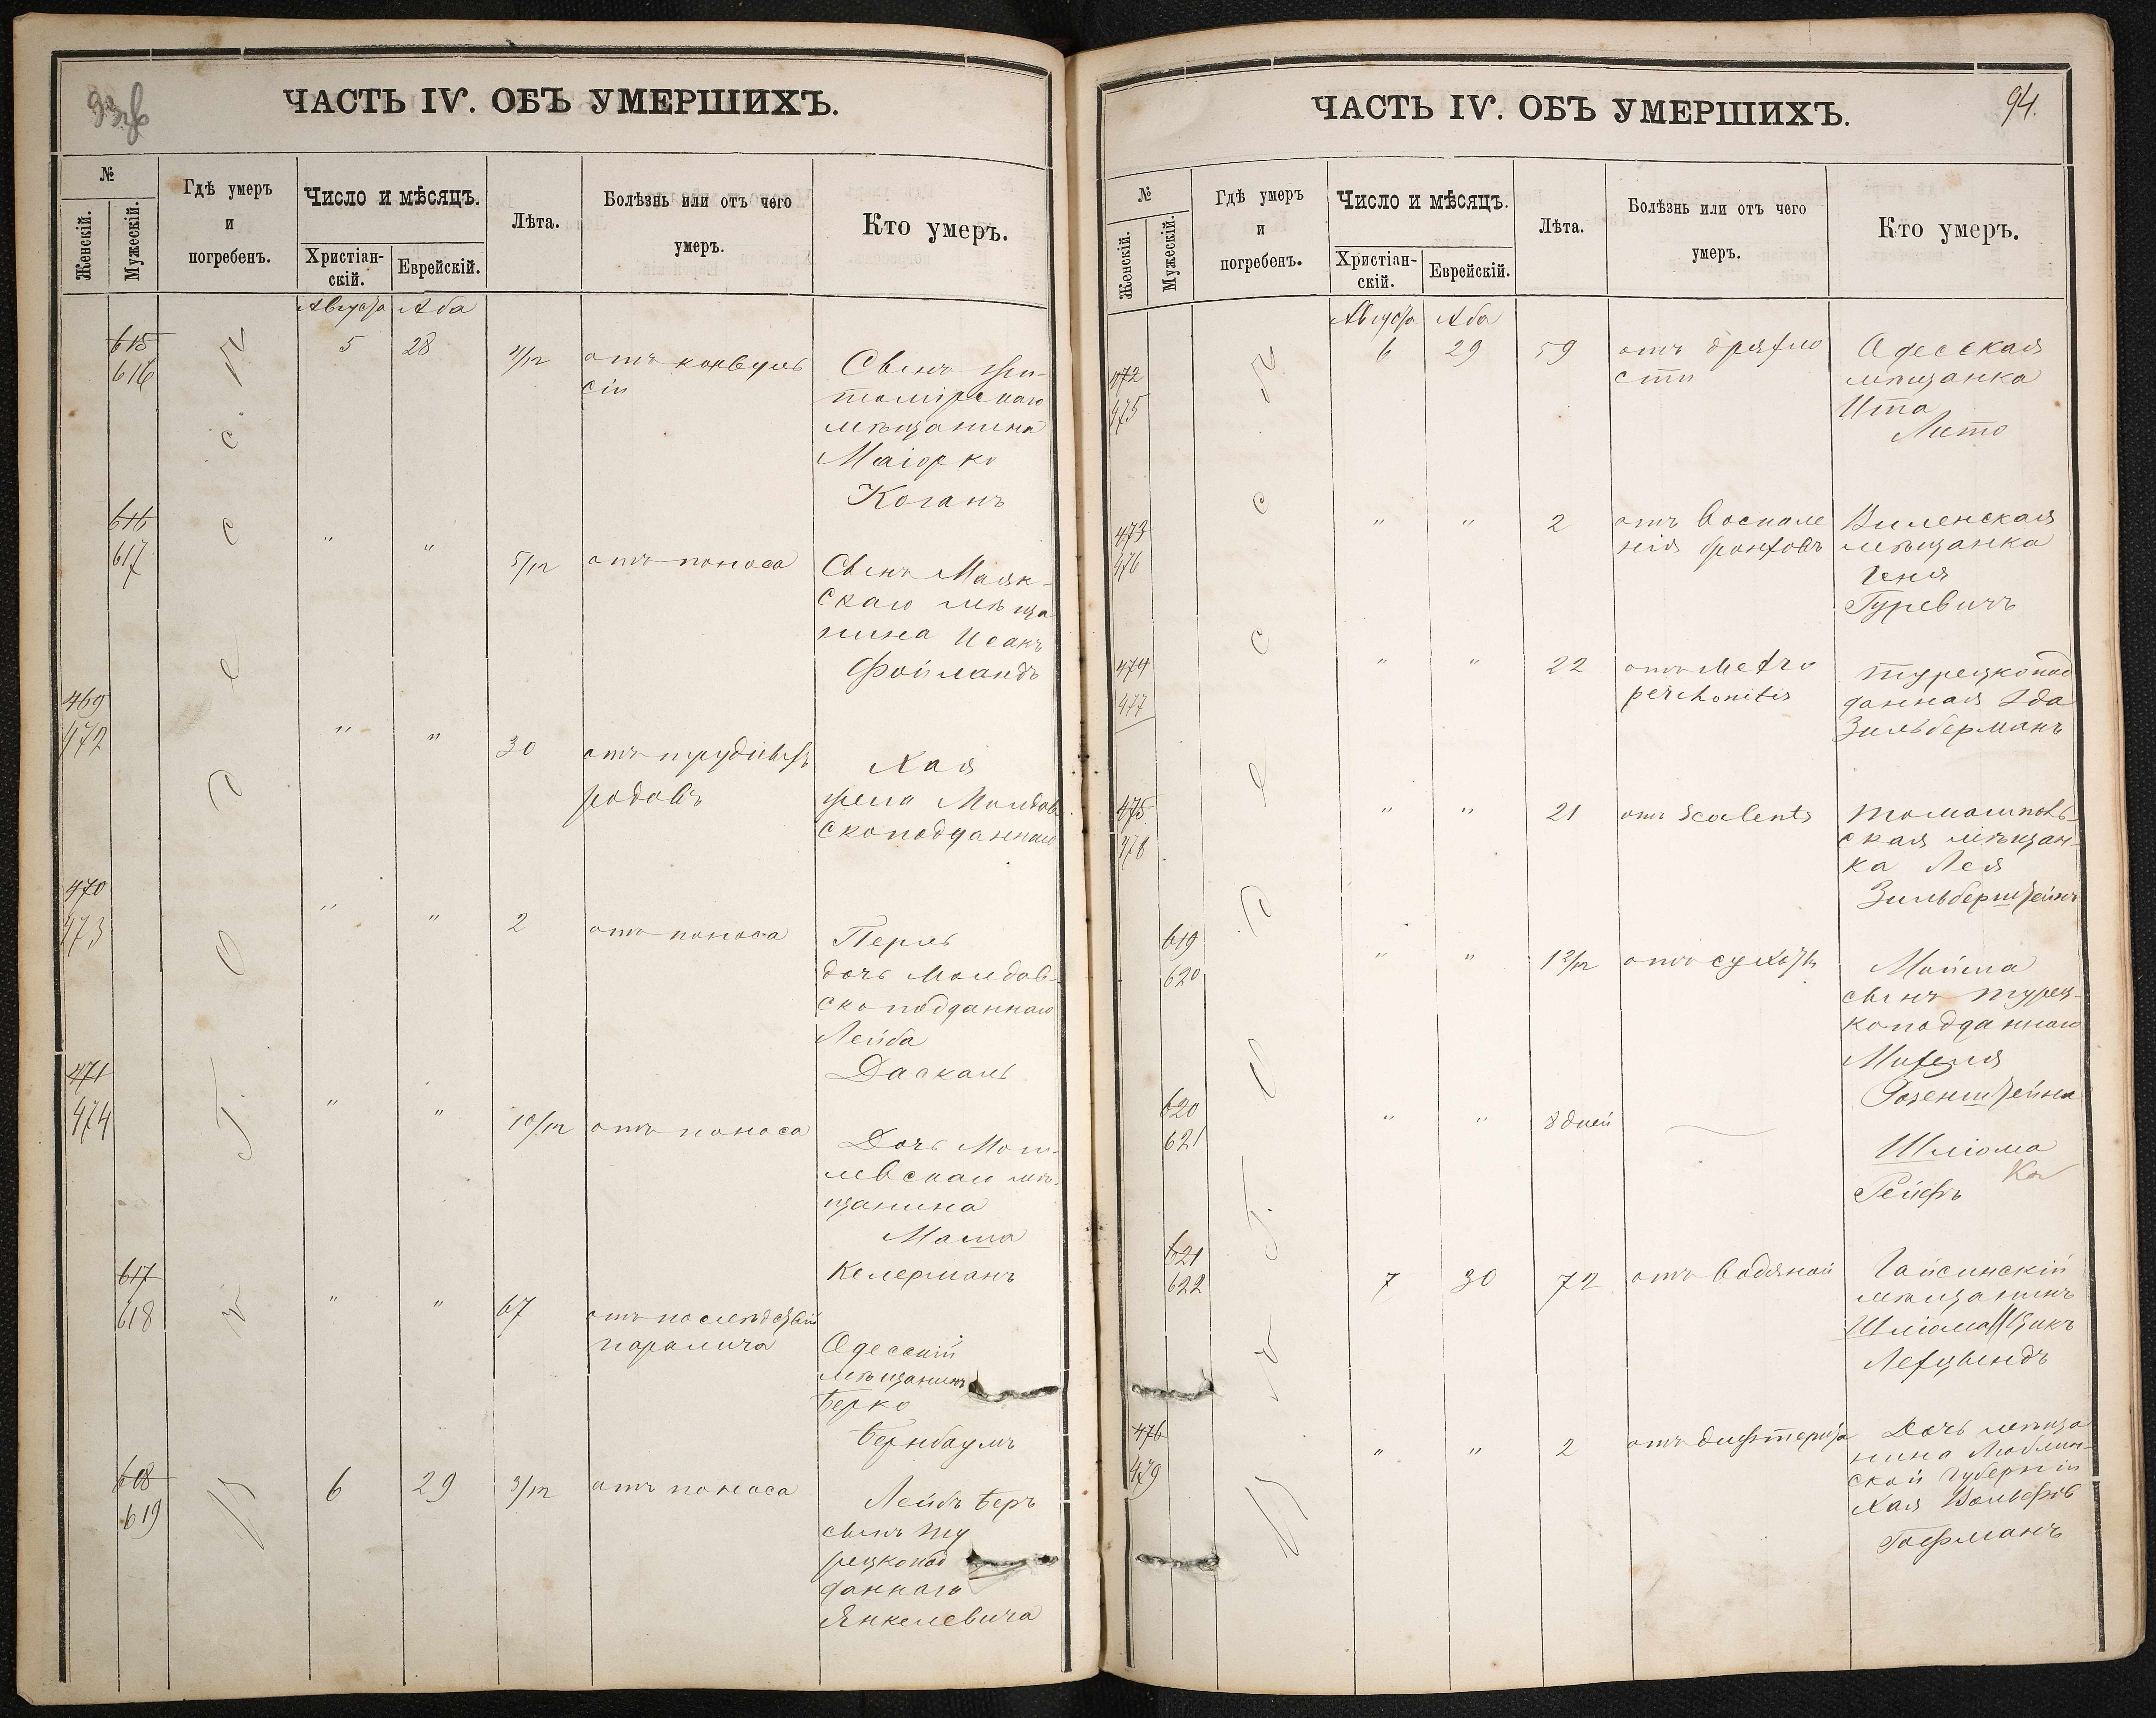 93об
ЧАСТЬ IV. ОБЪ УМЕРШИХЪ.
№
Женскій.
Мужескій.
Гдѣ умеръ
и
погребенъ.
Число и мѣсяцъ.
Христіан-
скій.
Еврейскій.
Лѣта.
Болѣзнь или отъ чего
умеръ.
Кто умеръ.
Въ г. Одессѣ
Августа Аба
615
616
5 28 отъ конвуль
сіи
Сынъ Жи-
томірскаго
мѣщанина
Маіорко
Коганъ
616
617
" " 5/12 отъ поноса
Сынъ Маяк-
скаго мѣща
нина Исакъ
Фойландъ
469
472
" " 30 отъ трудныхъ
родовъ
Хая
жена Молдав
скоподданнаго
470
473
" " 2 отъ поноса
Перль
дочь Молдав-
скоподданнаго
Лейба
Даскаль
471
474
" " 10/12 отъ поноса
Дочь Моги-
левскаго мѣ-
щанина
Маша
Келерманъ
617
618
" " 67 отъ послѣдствій
паралича
Одесскій
мѣщанинъ
Берко
Бернбаумъ
618
619
6 29 3/12 отъ поноса
Лейбъ Беръ
сынъ ту
рецкопод
даннаго
Янкелевича
94.
ЧАСТЬ IV. ОБЪ УМЕРШИХЪ.
№
Женскій.
Мужескій.
Гдѣ умеръ
и
погребенъ.
Число и мѣсяцъ.
Христіан-
скій.
Еврейскій.
Лѣта.
Болѣзнь или отъ чего
умеръ.
Кто умеръ.
Въ г. Одессѣ
Августа Аба
472
475
6 29 59 отъ дряхло
сти
Одесская
мѣщанка
Ита
473
476
" " 2 отъ воспале
нія бронховъ
Виленская
мѣщанка
Геня
Гуревичъ
474
477
" " 22 отъ Metro
peritonitis
турецкопод
данная Эда
Зильберманъ
475
478
" " 21 отъ
ская мѣщан-
ка Лея
Зильберштейнъ
619
620
" " 1 2/12 отъ сухотъ
сынъ турец-
коподданнаго
Михеля
Розенштейна
620
621
" " 8 дней —
Шліома
621
622
7 30 72 отъ водяной
Гайсинскій
мѣщанинъ
Шліома Ицикъ
476
479
" " 2 отъ дифтерита
Дочь мѣща
нина Люблин-
ской губерніи
Хая
Гофманъ